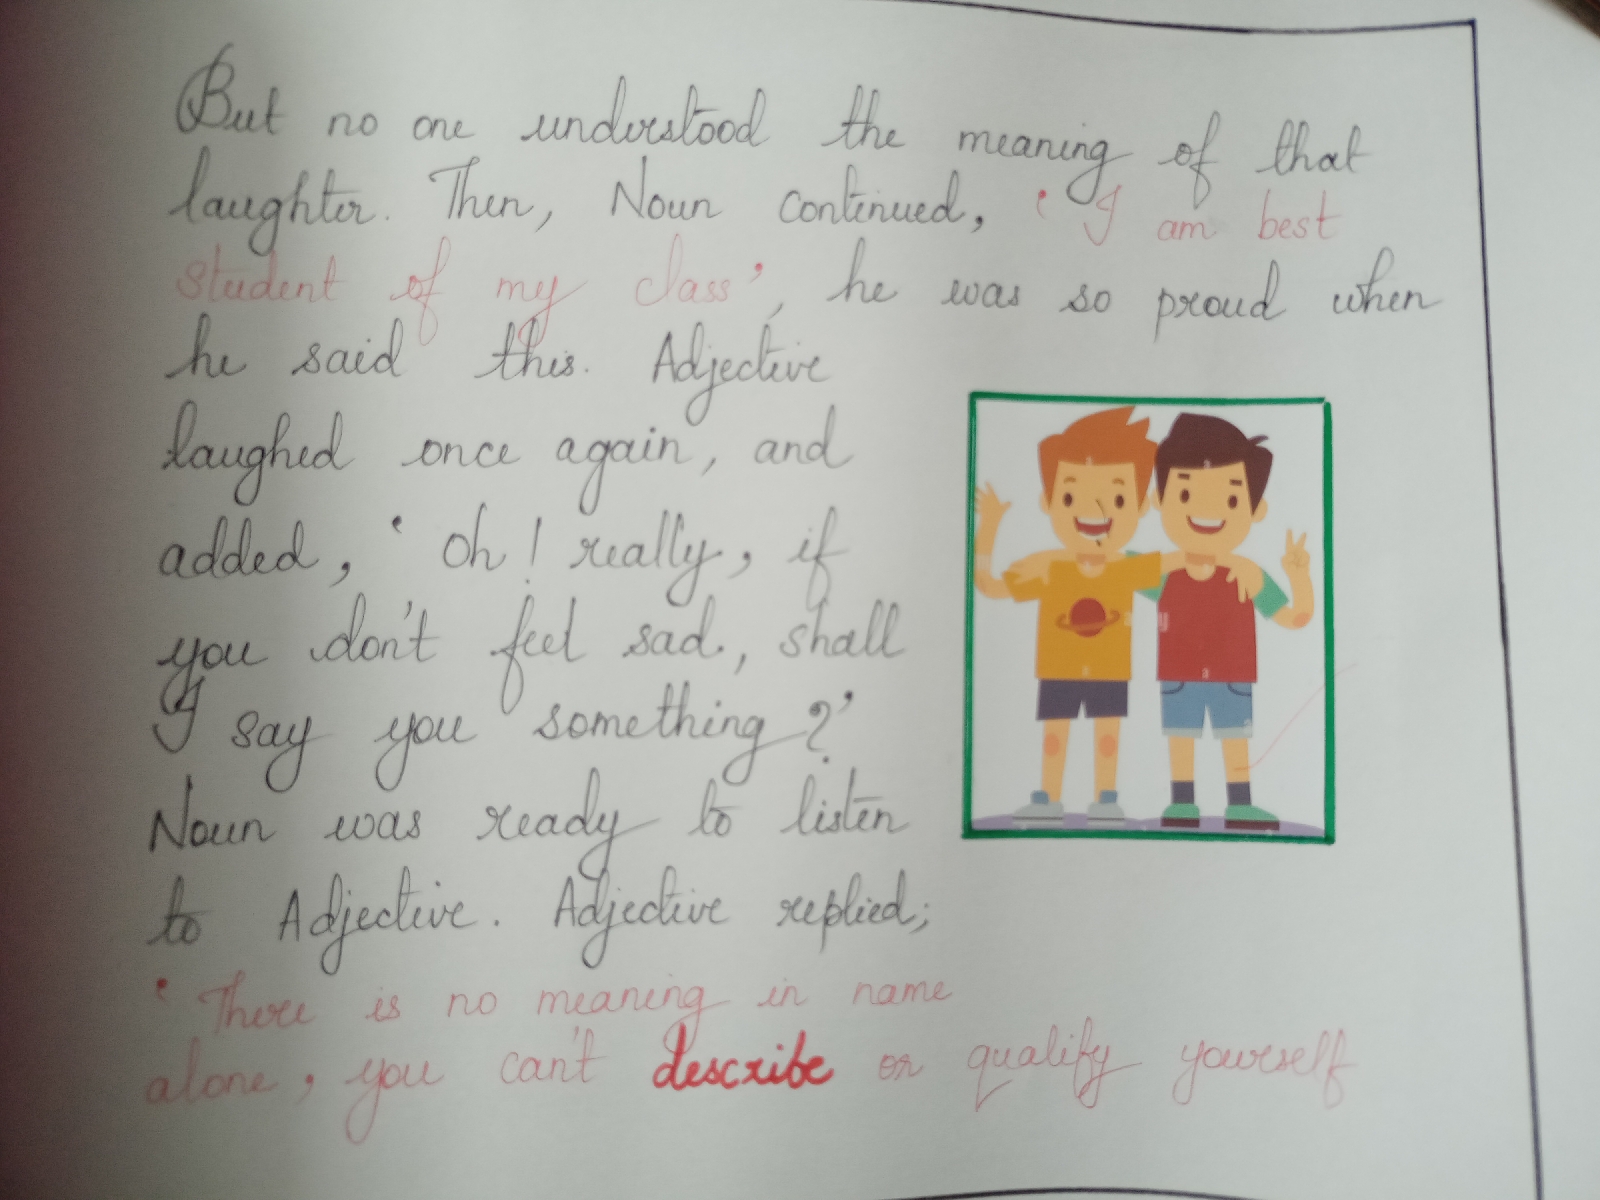 But no one understood the meaning of that
laughter. Then, Noun continued, ‘I am best
student of my class’, he was so proud when
he said this. Adjective
laughed once again, and
added, ‘Oh! really, if
you don't feel sad, shall
I say you something?’
Noun was ready to listen
to Adjective. Adjective replied;
‘There is no meaning in name
alone, you can't describe or qualify yourself